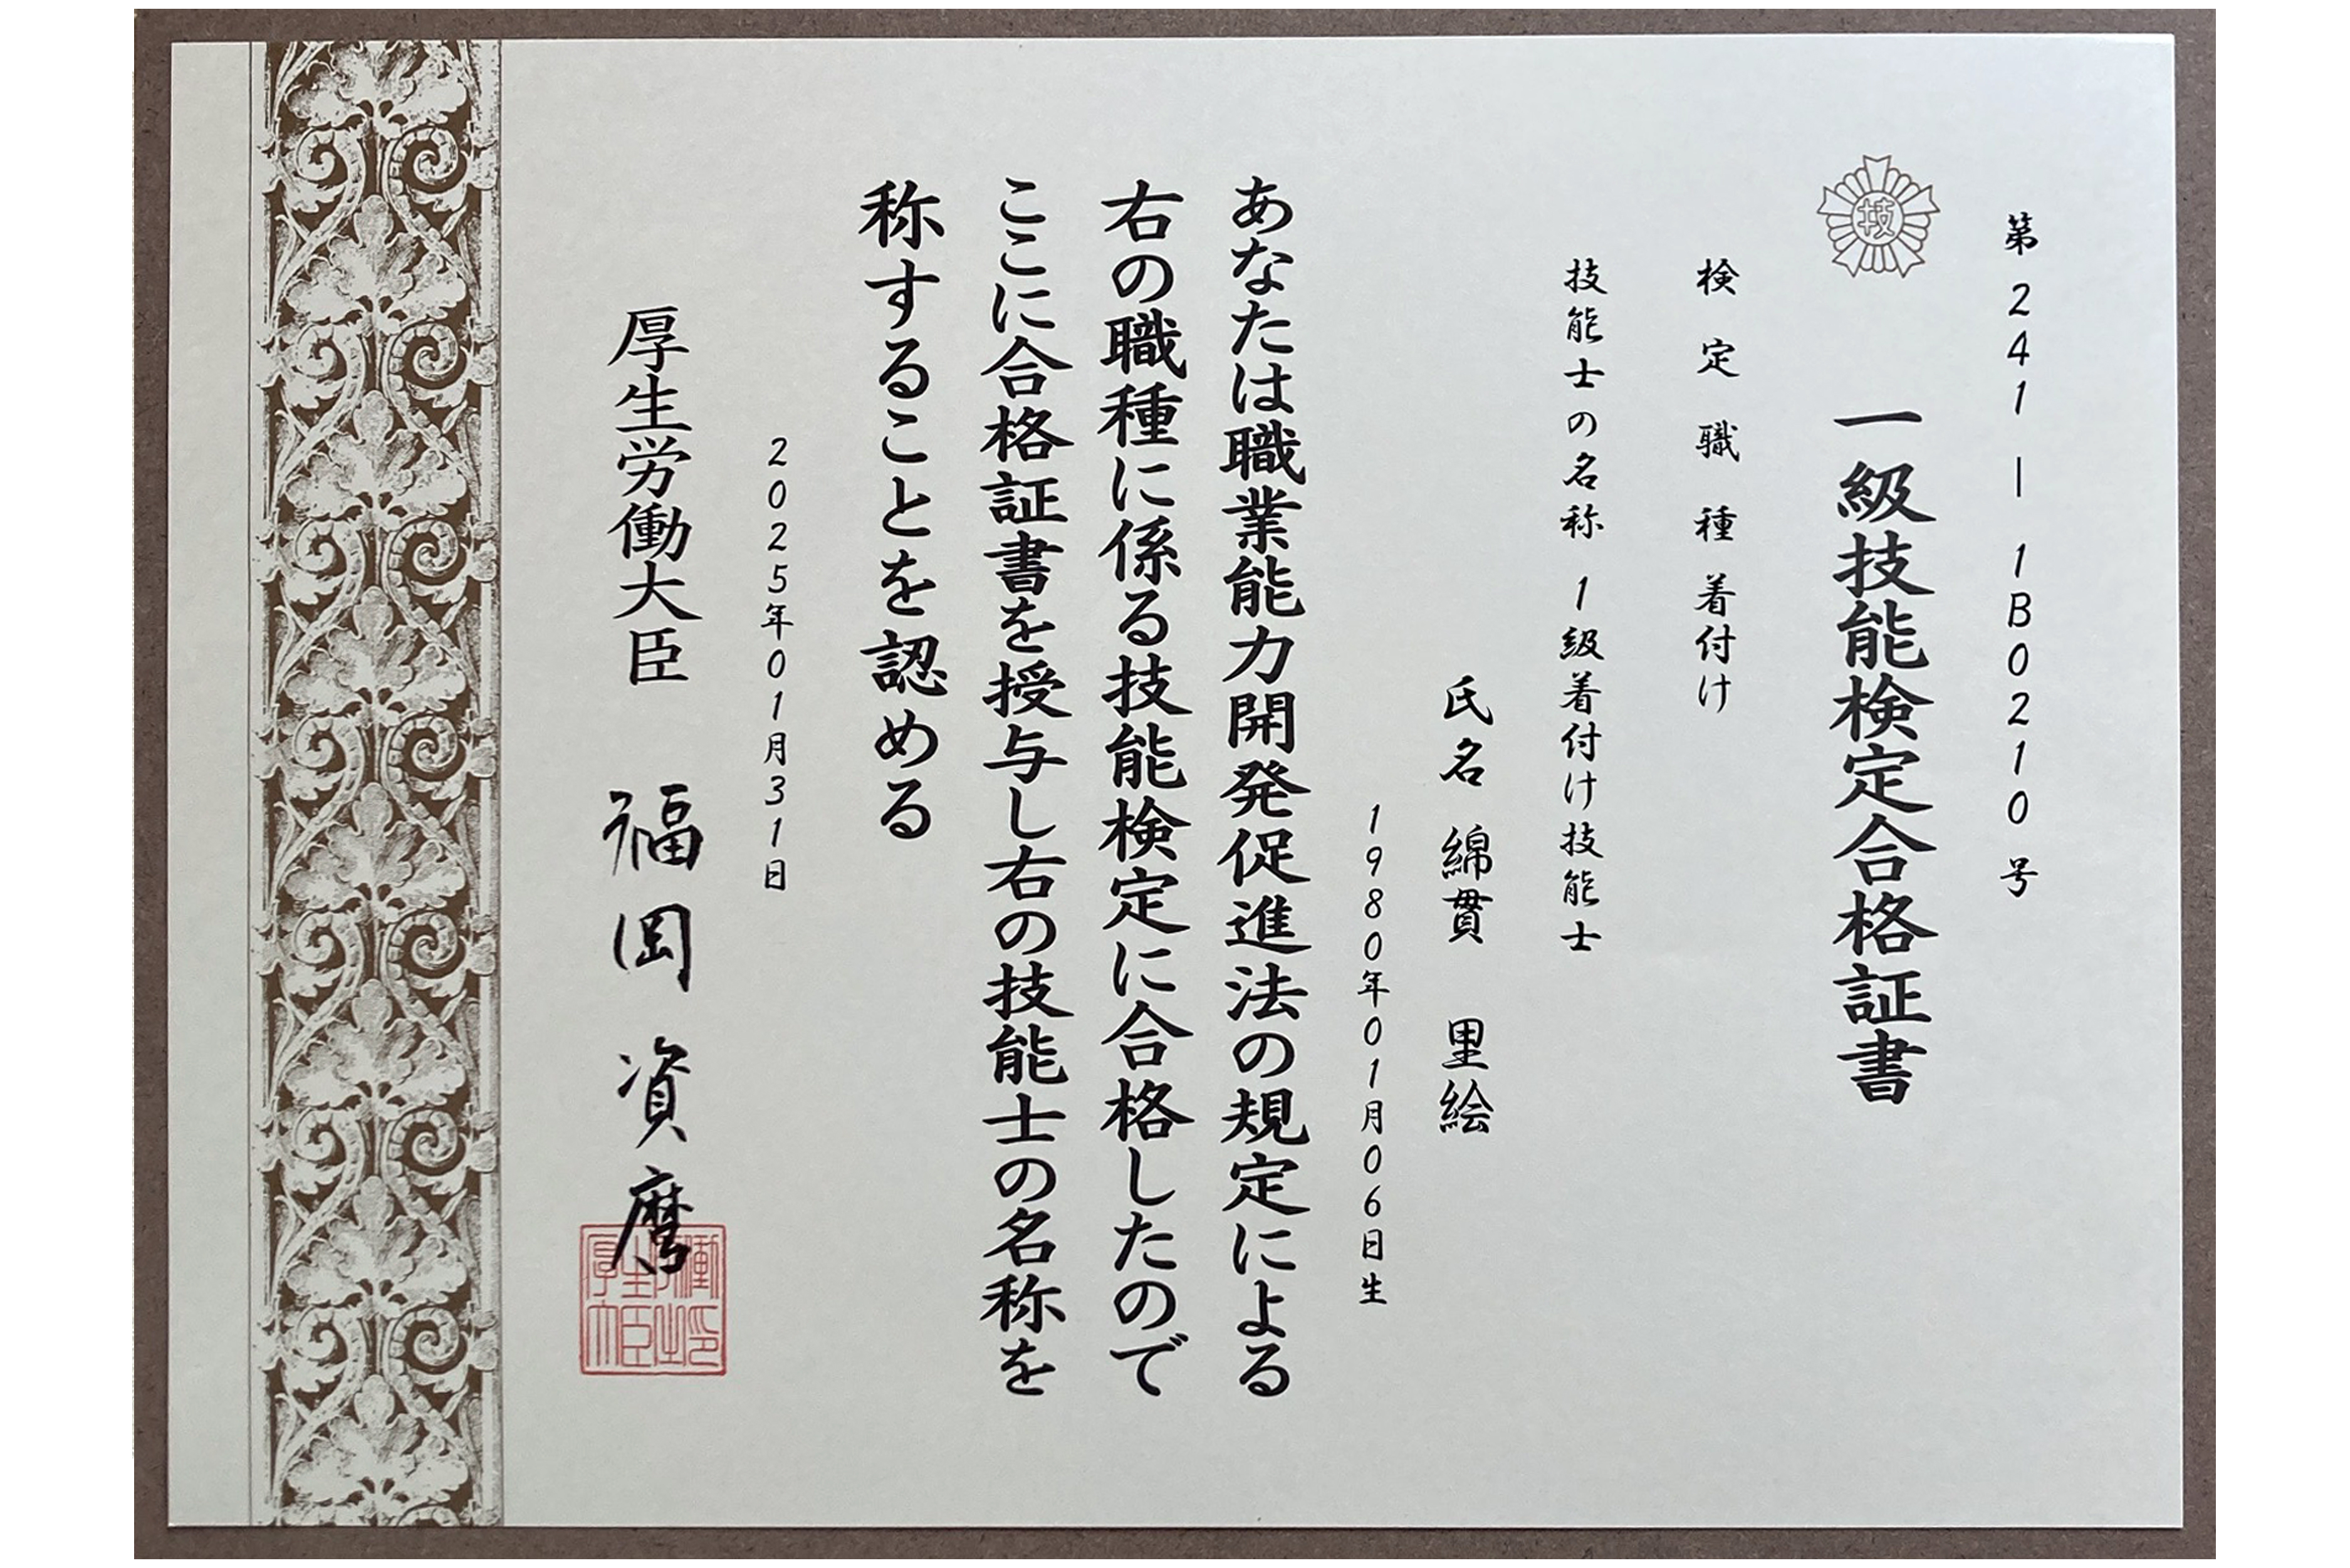 第241-1B0210号
技
一級技能検定合格証書
検定職種 着付け
技能士の名称 1級着付け技能士
氏名 綿貫 里絵
1980年01月06日生
あなたは職業能力開発促進法の規定による
右の職種に係る技能検定に合格したので
ここに合格証書を授与し右の技能士の名称を
称することを認める
2025年01月31日
厚生労働大臣 福岡資麿